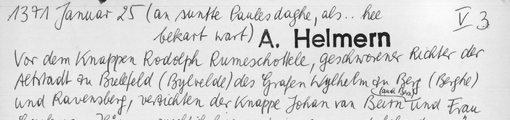 1371 Januar 25 (an sunte Paules daghe, als.. hee
bekart wart) A. Helmern V 3
Vor dem Knappen Rodolph Rumeschottele, geschworener Richter der
Altstadt zu Bielefeld (Bylvelde) des Grafen Wylhelm zu Berg (Berghe)
und Ravensberg, verzichten der Knappe Johan van Bern und Frau